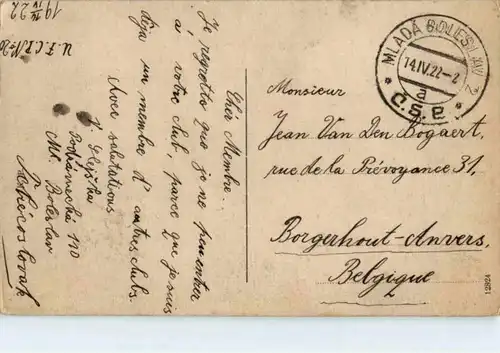 19 14/IV 22
Cher Membre.
Je regrette que je ne peu entrer
à votre club, parce que je suis
déja un membre d'autres clubs.
Avec salutations
V.
110
Ml. Boleslav
MLADÁ BOLESLAV 2
14.IV.22-2
a
Č.S.P.
Monsieur
Jean Van Den Bogaert,
rue de la Prévoyance 31,
Borgerhout-Anvers,
Belgique
12824